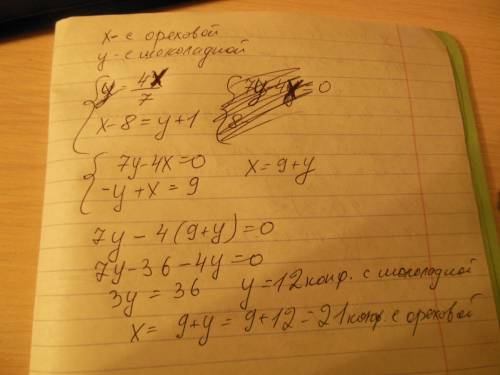 x- с ореховой
y- с шоколадной
{ y - 4x/7
x-8=y+1
{ 7y-4x=0
-y+x=9
x=9+y
7y-4(9+y)=0
7y-36-4y=0
3y=36 y=12 конф. с шоколадной
x= 9+y=9+12=21 конф. с ореховой